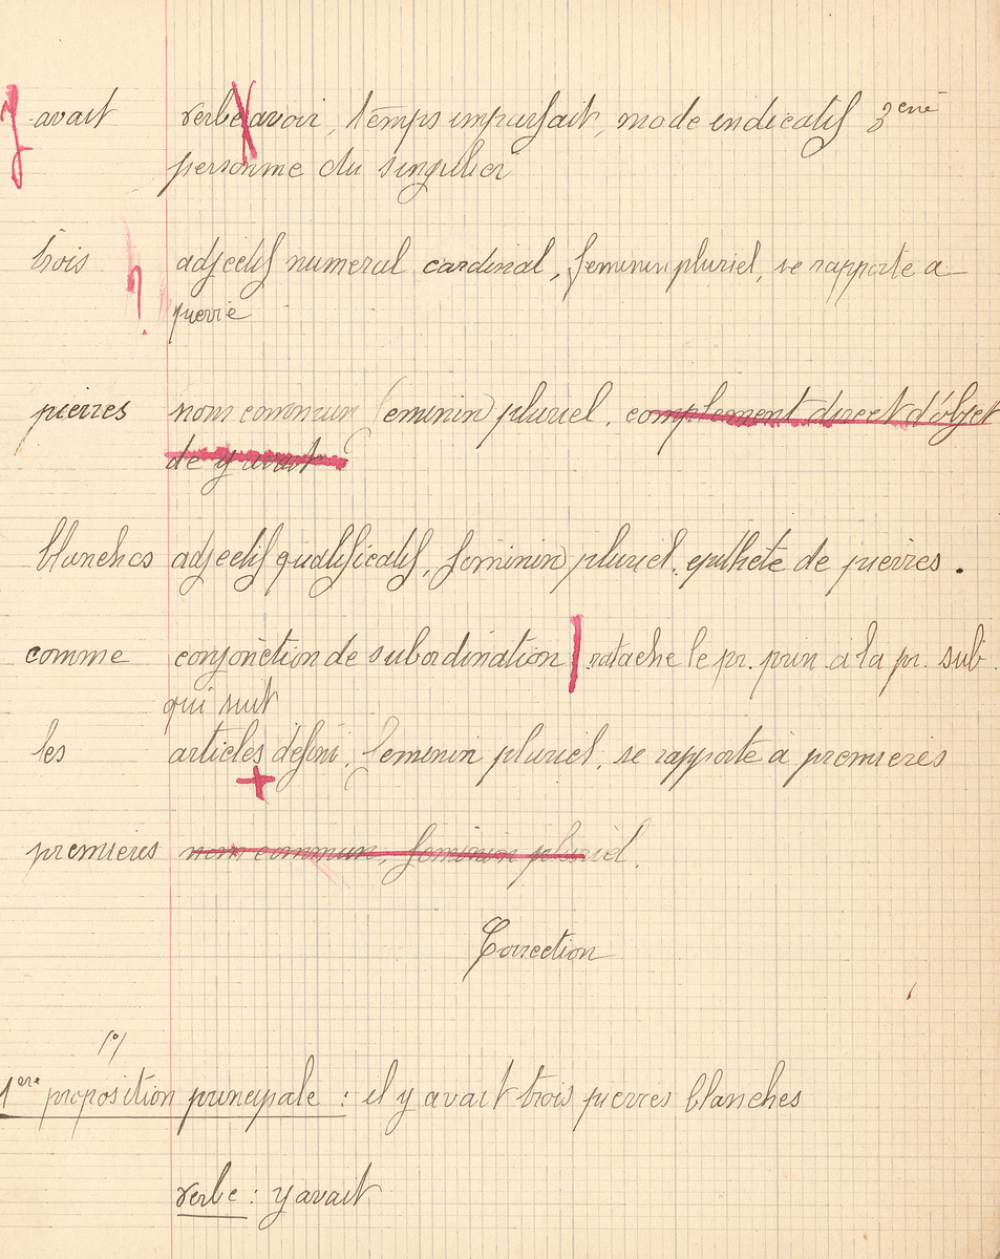 y avait verbe y avoir, temps imparfait, mode indicatif 3ème
personne du singulier
trois adjectif numeral cardinal, feminin pluriel, se rapporte a
pierre
pierres nom commun feminin pluriel. complement direct d'objet
de y avait
blanches adjectif qualificatif, feminin pluriel, epithete de pierres.
comme conjonction de subordination | ratache le pr. prin. a la pr. sub.
qui suit
les articles défini, feminin pluriel, se rapporte à premieres
premieres nom commun, feminin pluriel.
Correction
1°/
1ere proposition principale : il y avait trois pierres blanches
verbe : y avait